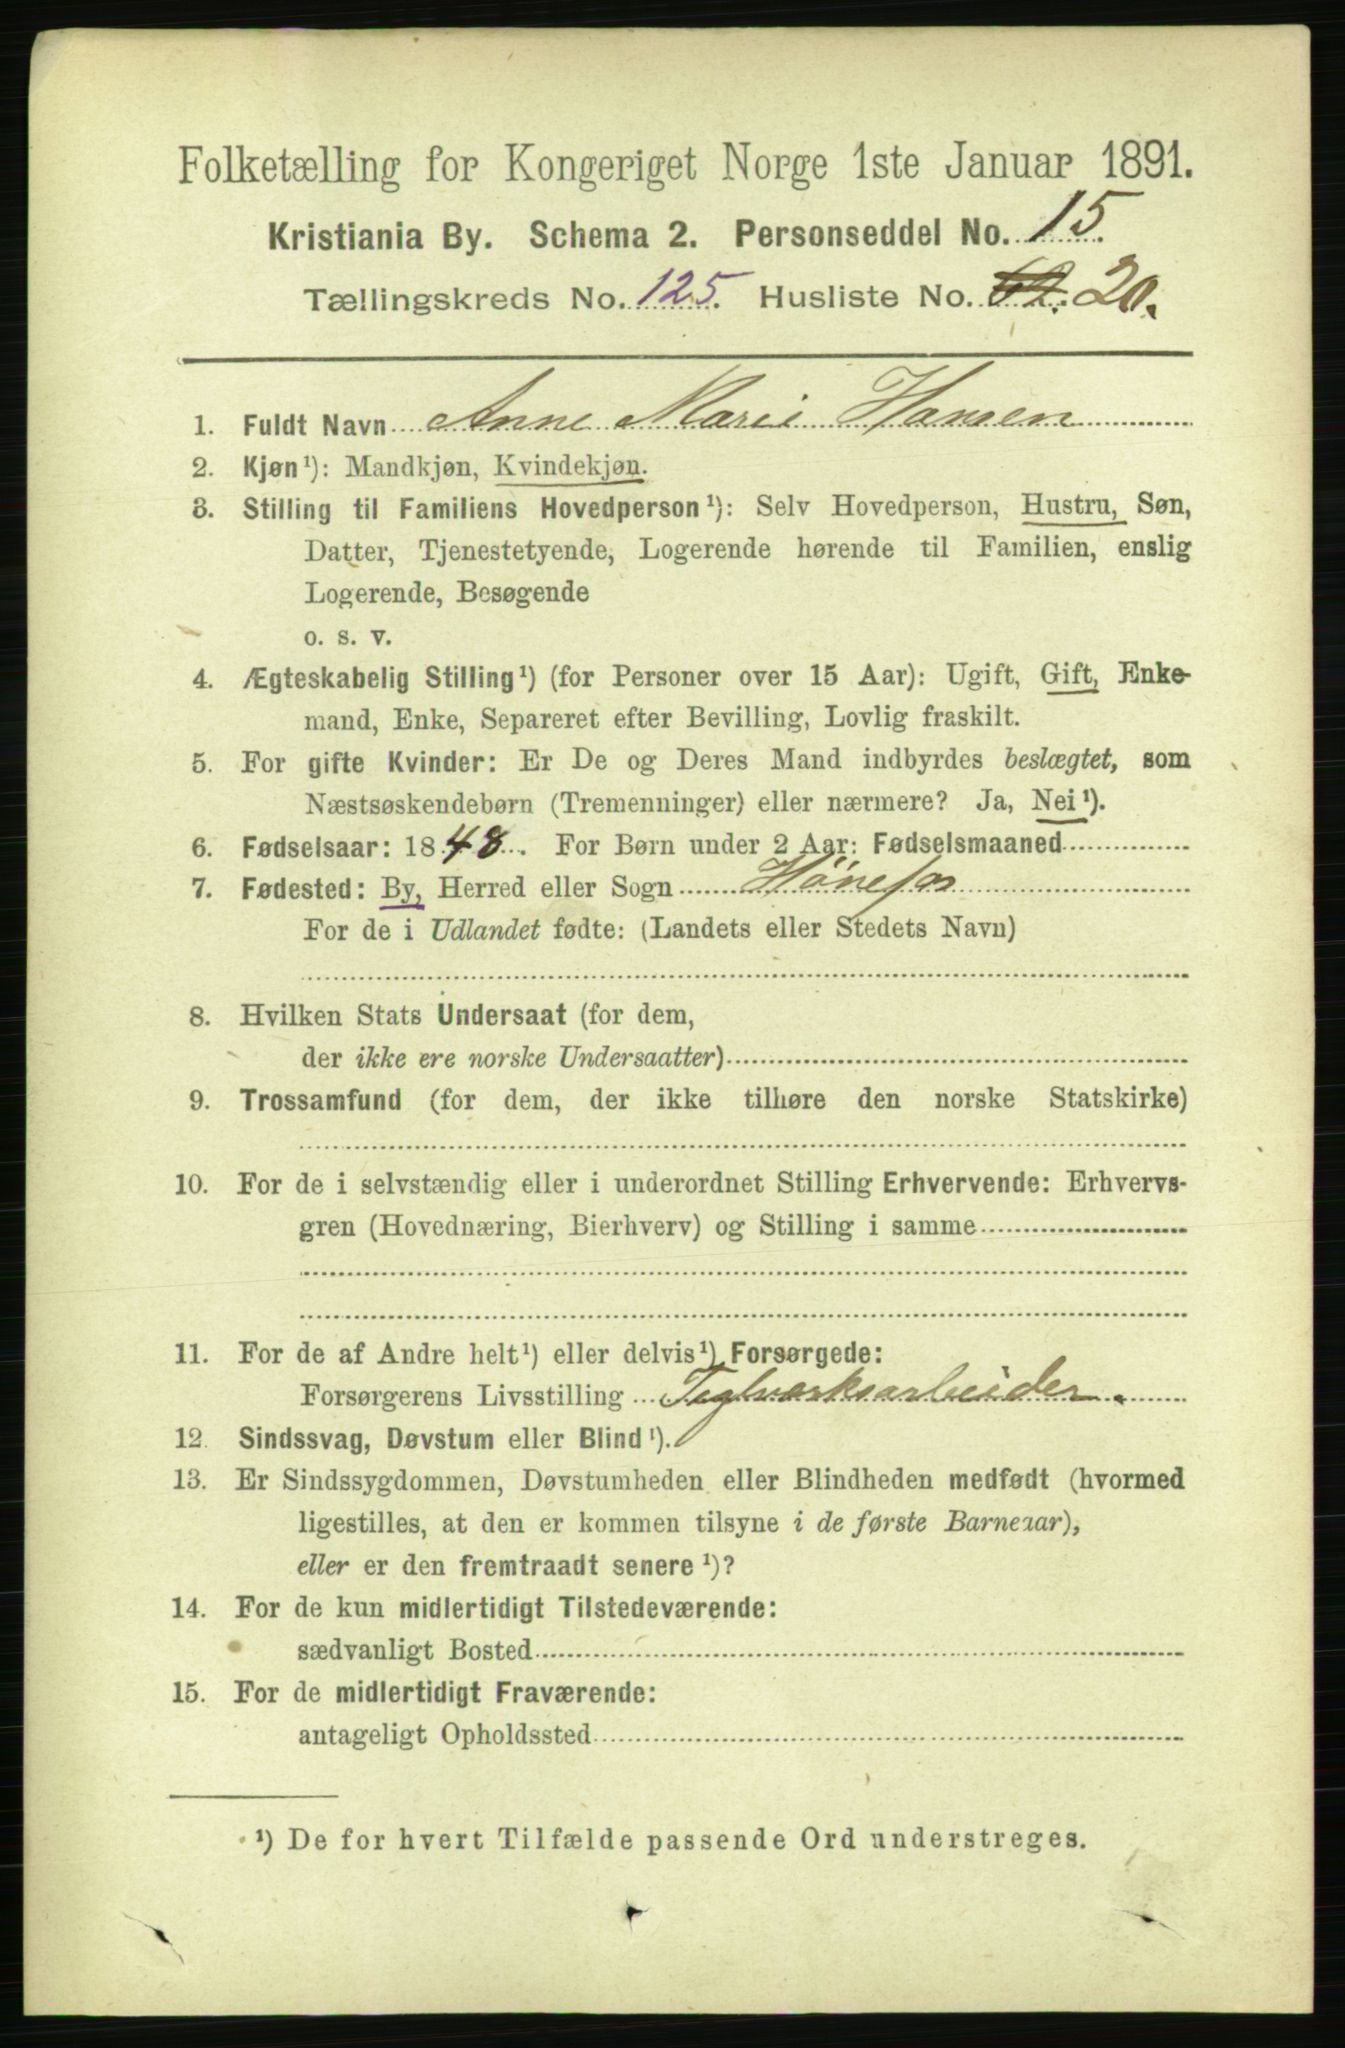 Folketælling for Kongeriget Norge 1ste Januar 1891.
Kristiania By. Schema 2. Personseddel No. 15.
Tællingskreds No. 125. Husliste No. 20.
1. Fuldt Navn Anne Marie Hansen
2. Kjøn¹): Mandkjøn, Kvindekjøn.
3. Stilling til Familiens Hovedperson¹): Selv Hovedperson, Hustru, Søn,
Datter, Tjenestetyende, Logerende hørende til Familien, enslig
Logerende, Besøgende
o. s. v.
4. Ægteskabelig Stilling¹) (for Personer over 15 Aar): Ugift, Gift, Enke-
mand, Enke, Separeret efter Bevilling, Lovlig fraskilt.
5. For gifte Kvinder: Er De og Deres Mand indbyrdes beslægtet, som
Næstsøskendebørn (Tremenninger) eller nærmere? Ja, Nei¹).
6. Fødselsaar: 1848. For Børn under 2 Aar: Fødselsmaaned
7. Fødested: By, Herred eller Sogn Hønefos
For de i Udlandet fødte: (Landets eller Stedets Navn)
8. Hvilken Stats Undersaat (for dem,
der ikke ere norske Undersaatter)
9. Trossamfund (for dem, der ikke tilhøre den norske Statskirke)
10. For de i selvstændig eller i underordnet Stilling Erhvervende: Erhvervs-
gren (Hovednæring, Bierhverv) og Stilling i samme
11. For de af Andre helt¹) eller delvis¹) Forsørgede:
Forsørgerens Livsstilling Teglværksarbeider.
12. Sindssvag, Døvstum eller Blind¹).
13. Er Sindssygdommen, Døvstumheden eller Blindheden medfødt (hvormed
ligestilles, at den er kommen tilsyne i de første Barneaar),
eller er den fremtraadt senere¹)?
14. For de kun midlertidigt Tilstedeværende:
sædvanligt Bosted
15. For de midlertidigt Fraværende:
antageligt Opholdssted
¹) De for hvert Tilfælde passende Ord understreges.